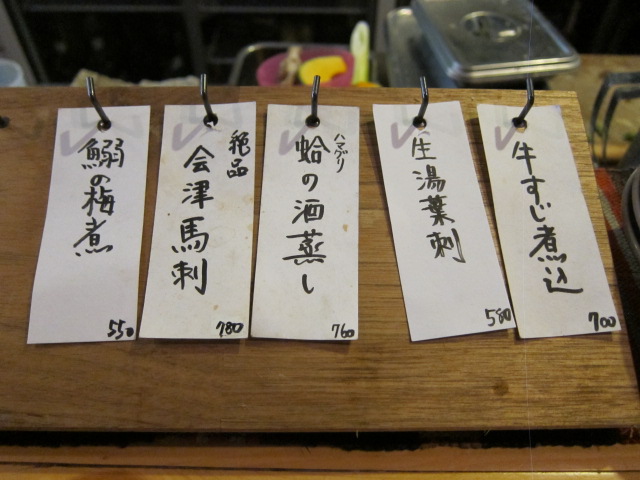 牛すじ煮込
700
生湯葉刺
580
ハマグリ
蛤の酒蒸し
760
絶品
会津馬刺
780
鰯の梅煮
550